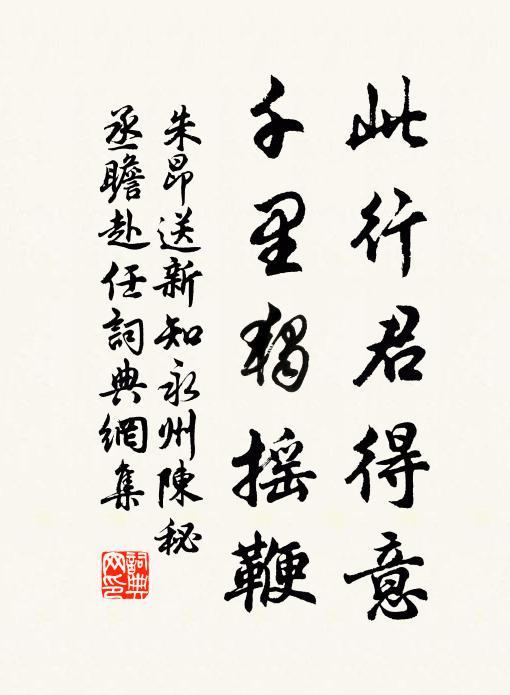 此行君得意
千里獨摇鞭
朱昂送新知永州陳秘
丞瞻赴任詞典網集
詞典
网印